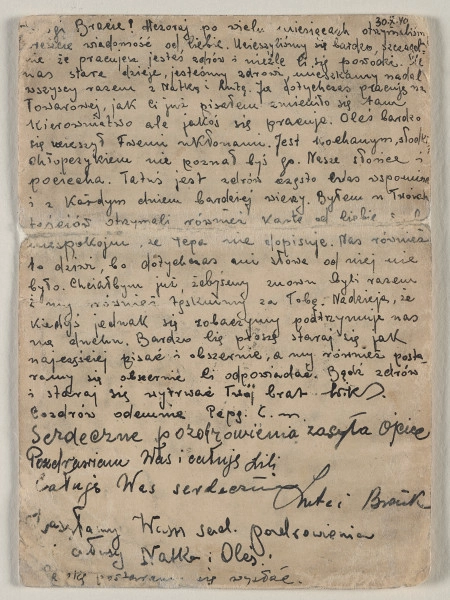 30.X.40
Bracie! Wczoraj po wielu miesiącach otrzymaliśmy
wiadomość od Ciebie. Ucieszyliśmy się bardzo,
że pracuje jesteś zdrów i nieźle Ci się powodzi. U
nas stare dzieje, jesteśmy zdrowi, mieszkamy nadal
wszyscy razem z Natką i Ja dotychczas pracuję na
Towarowej, jak Ci już pisałem zmieniło się tam
kierownictwo ale jakoś się pracuje. Oleś bardzo
się ucieszył Twemi ukłonami. Jest kochanym, słodkim
chłopczykiem nie poznał byś go. Nasze słońce i
pociecha. Tatuś jest zdrów często Was wspomina
i z każdym dniem bardziej wierzy. Byłem u Twoich
teściów otrzymali również kartę od Ciebie i są
niespokojni, że Pepa nie dopisuje. Nas również
to dziwi, bo dotychczas ani słowa od niej nie
było. Chciałbym już, żebyśmy znowu byli razem
i my również tęsknimy za Tobą. Nadzieja, że
kiedyś jednak się zobaczymy podtrzymuje nas
na duchu. Bardzo Cię proszę staraj się jak
najczęściej pisać i obszernie, a my również posta-
ramy się obszernie Ci odpowiadać. Bądź zdrów
i staraj się wytrwać Twój brat
Pozdrów odemnie Pepę.
Serdeczne pozdrowienia zasyła Ojciec
Pozdrawiam Was i całuję Lili
Całuję Was serdecznie
Wam serd. pozdrowienia
i całusy Natka i Oleś.
się wysłać.